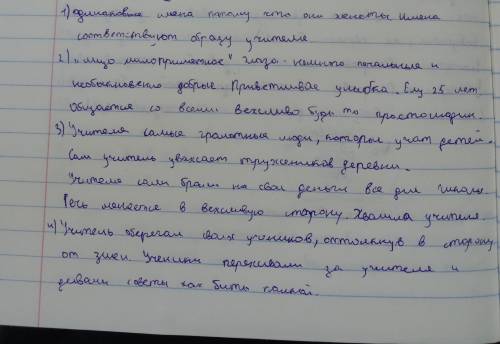 1) одинаковые имена потому что они женаты. Имена
соответствуют образу учителя
2) "лицо малоприметное" глаза - немного печальные и
необыкновенно добрые. Приветливая улыбка. Ему 25 лет.
Общается со всеми вежливо будь то простолюдин.
3) Учителя самые грамотные люди, которые учат детей.
Сам учитель уважает тружеников деревни.
Учителя сами брали на свои деньги все для школы.
Речь меняется в вежливую сторону. Хвалила учителя.
4) Учитель оберегал своих учеников, оттолкнув в сторону
от змеи. Ученики переживали за учителя и
давали советы как бить палкой.